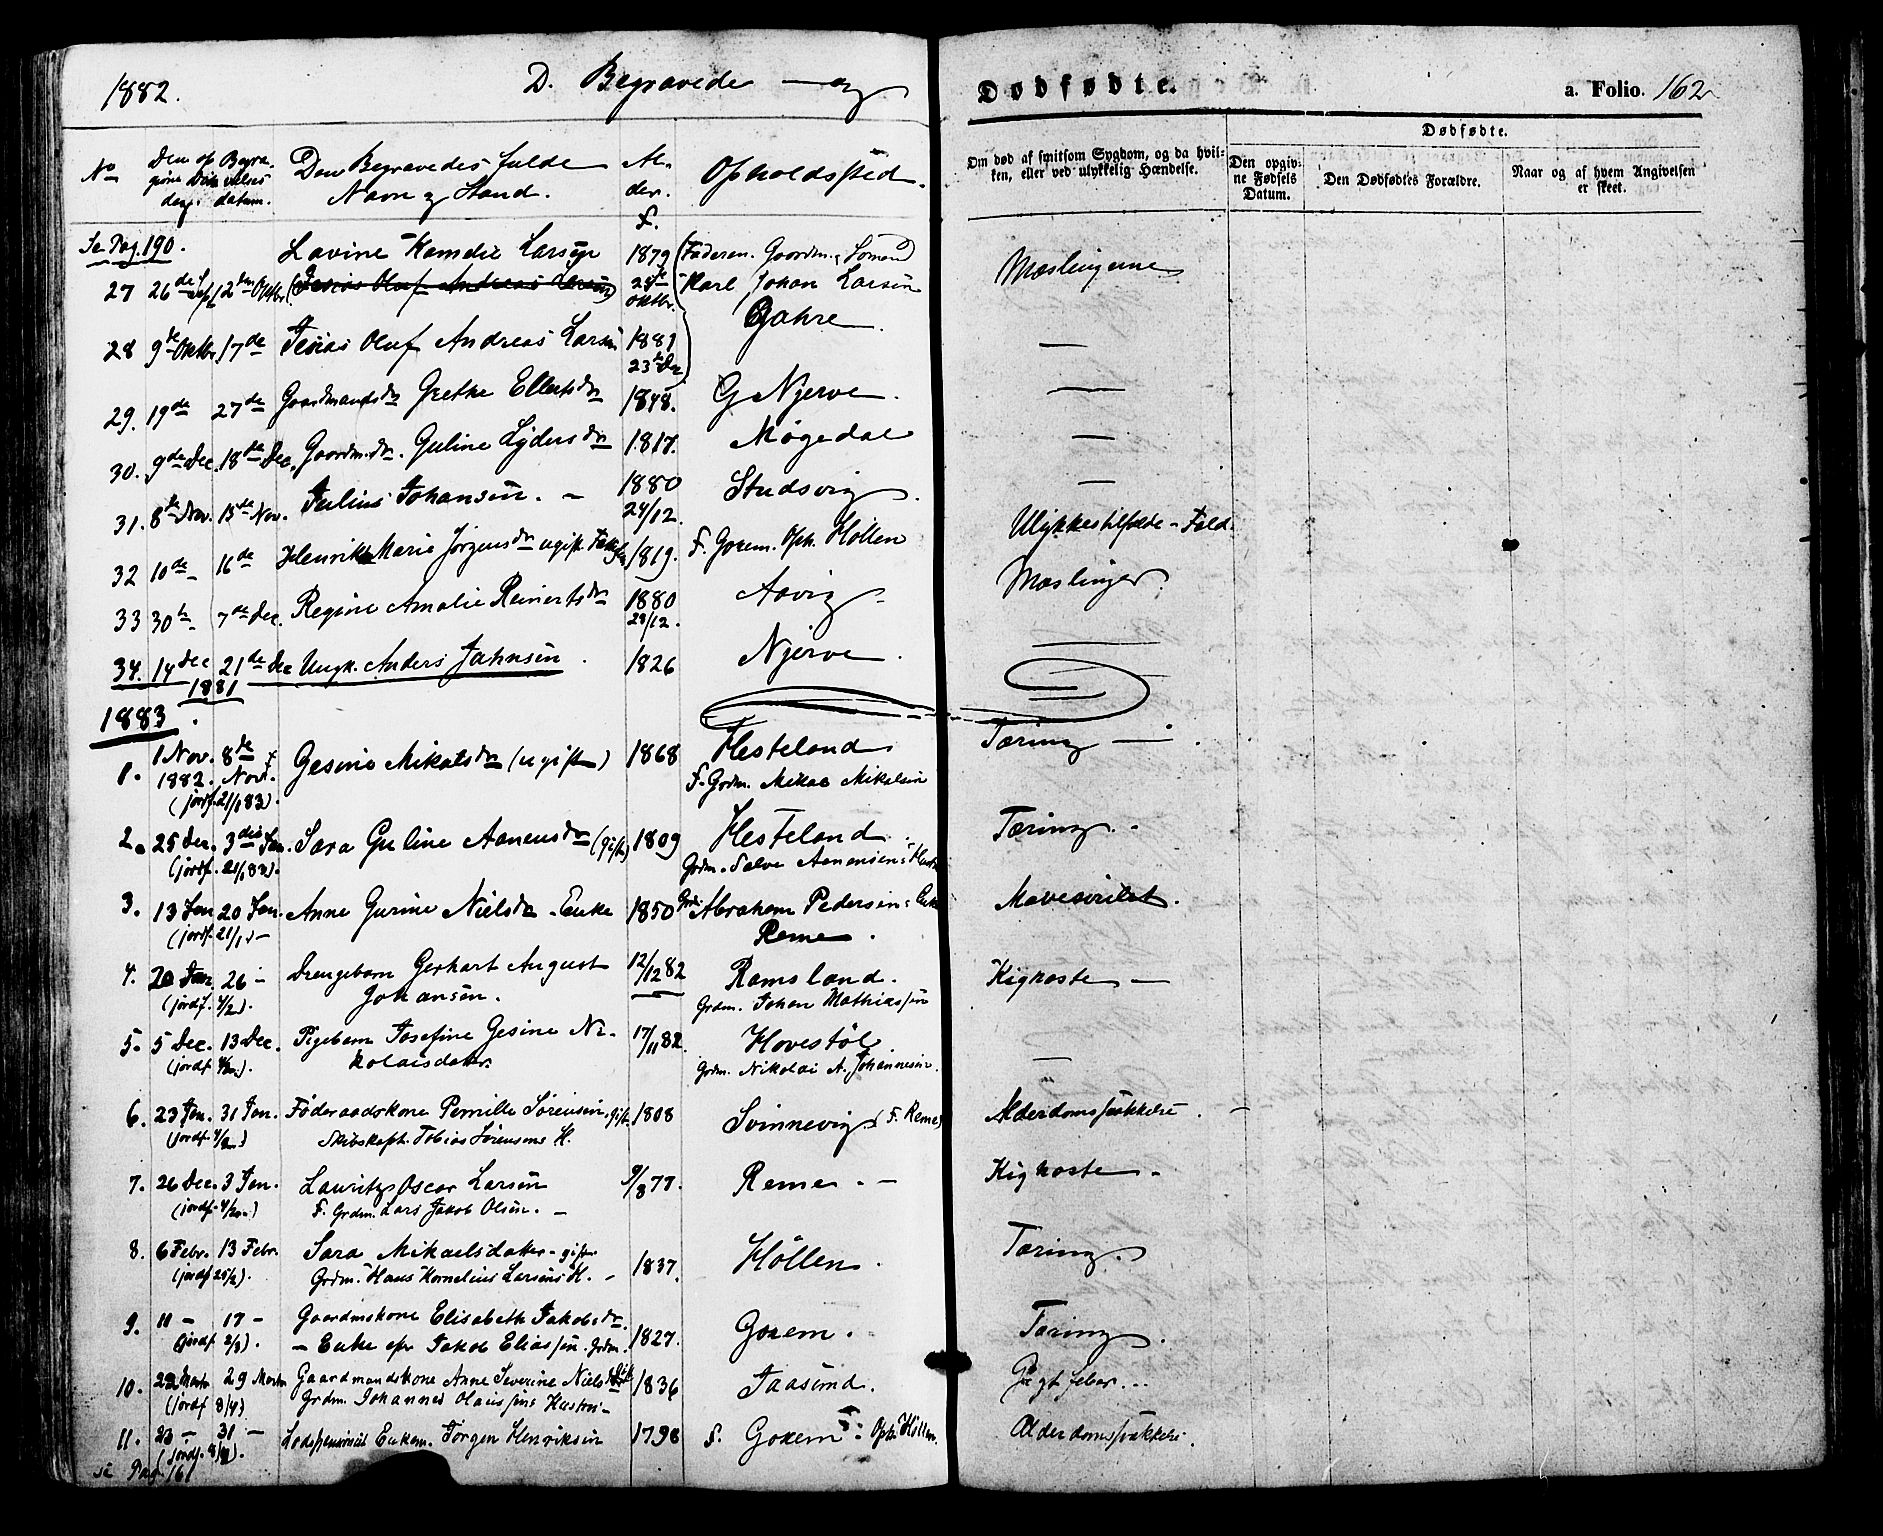 1882. D. Begravede og Dødfødte. a. Folio. 162
No Den op Begra- Den Begravedes fulde Al- Opholdssted.
givne Døds velses Navn og Stand. der.
dag. datum. F.
Om død af smitsom Sygdom, og da hvil-
ken, eller ved ulykkelig Hændelse.
Dødfødte.
Den opgiv-
ne Fødsels
Datum.
Den Dødfødtes Forældre.
Naar og af hvem Angivelsen
er skeet.
Se Pag. 190. Lavine Larsen 1879 Faderen. Gaardm.
27 26de Sept 12 Oktbr. (Tesias Oluf Andreas Larsen) Oktbr. Karl Johan Larsen Mæslingerne
Gahre
28 9de Oktbr 17de Tesias Oluf Andreas Larsen 1881 —
23de Dec
29. 19de 27de Gaardmandsdr Grethe Ellertsdr 1848. G Njerve. —
30. 9de Dec. 18de Dec. Gaardm.dr. Guline Lydersdr 1817. Møgedal —
31. 8de Nov. 15de Nov. Julius Johansen. — 1880 Studsvig. —
24/12.
32 10de — 16de Marie Jørgensdr ugift 1819. F. Goxem. Oph. Höllen Ulykkestilfælde — Fald.
33 30te — 7de Dec. Regine Amalie Reinertsdr 1880 Aavig — Mæslinger.
29/12.
34. 14 Dec 21de Dec Ungk. Anders Jahnsen. 1826 Njerve. —
1881
1883.
1. 1 Nov. 8de Gesine Mikalsdr (ugift) 1868 Hesteland Tæring —
1882. Nov. F. Grdm. Mikal Mikalsen
(jordf. 21/1 83).
2. 25 Dec. 3die Jan. Sara Guline Aanensdr (gift) 1809 Hesteland. Tæring. —
(jordf. 21/1 83). Grdm. Salve Aanensens Hustru
3. 13 Jan 20 Jan. Anne Gurine Nielsdr — Enke 1850 Abraham Pedersens Enke
(jordf. 21/1). — Reme.
4. 20 Jan. 26 — Drengebarn Gerhart August 12/12 82 Ramsland. Kighoste —
(jordf. 4/2). Johansen. Grdm. Johan Mathiassen
5. 5 Dec. 13 Dec. Pigebarn Josefine Gesine Ni- 17/11 82. Hovestøl —
(jordf. 4/2). kolaisdatter. Grdm. Nikolai A. Johannesen.
6. 23 Jan. 31 Jan. Föderaadskone Pernille Sørensen, gift. 1808 Svinnevig (F. Reme) Alderdomssvækkelse. —
(jordf. 4/2) Skibskapt. Tobias Sørensens H.
7. 26 Dec. 3 Jan. Lauritz Oscar Larsen 9/8 77. Reme. — Kighoste —
(jordf. 4/2 —) F. Grdm. Lars Jakob Olsen. —
8. 6 Febr. 13 Febr. Sara Mikaelsdatter — gift. 1837. Höllen. Tæring.
(jordf 25/2). Grdm. Hans Kornelius Larsens H. —
9. 11 — 17 — Gaardmskone Elisabeth Jakobsdr. 1827. Goxem. Tæring.
(jordf. 2/3). — Enke efter Jakob Eliassen. Grdm.
10. 22 Marts 29 Marts Gaardmandskone Anne Severine Nielsdr 1836 Taasund. Gigtfeber.
(jordf 8/4) Grdm. Johannes Olaussens Hustru —
11. 23 — 31 — Lodspensionist Enkem. Jörgen Henriksen 1798 F. Goxem: Oph. Höllen. Alderdomssvækkelse.
(jordf. 8/4).
se Pag. 161